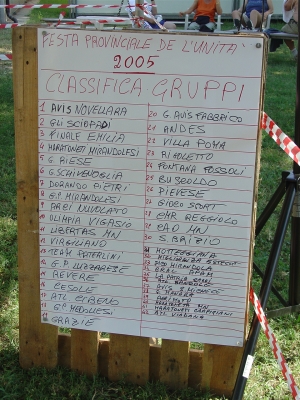 FESTA PROVINCIALE DE L'UNITA'
2005
CLASSIFICA GRUPPI
1 AVIS NOVELLARA
2 GLI SCIOPADI
3 FINALE EMILIA
4 MARATONETI MIRANDOLESI
5 G. RIESE
6 G. SCHIVENOGLIA
7 DORANDO PIETRI
8 G.P. MIRANDOLESI
9 FAREI NUVOLATO
10 OLIMPIA VIGASIO
11 LIBERTAS MN
12 VIRGILIANO
13 TEAM PATERLINI
14 G.P. LUZZARESE
15 REVERE
16 CESOLE
17 ATL.
18 G. MEDOLESI
19 GRAZIE
20 G. AVIS FABBRICO
21 ANDES
22 VILLA POMA
23 RIGOLETTO
24 FONTANA FOSSOLI
25 BUSCOLDO
26 PIEVESE
27 GIOCO SORT
28 CMR REGGIOLO
29 CAD MN
30 S. BRIZIO
MOTTEGGIANA
MIRANDOLA
LA PATRIA CARPI
MN
MARATONETI CAMPIGIANI
ATL VIADANA